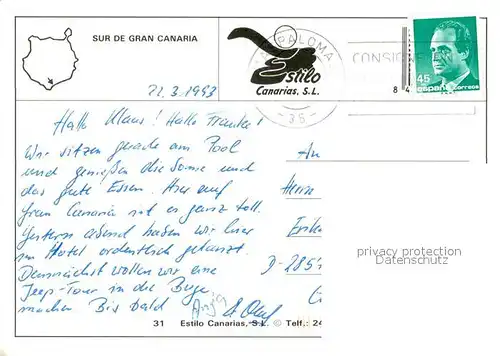 SUR DE GRAN CANARIA
PALOMA
CONSIGNE
45
ESPAÑA correos
Estilo
Canarias, S.L.
8 4
- 35 -
21.3.1993
Hallo Klaus! Hallo Frauke!
Wir sitzen gerade am Pool
und genießen die Sonne und
das gute Essen. Hier auf
Gran Canaria ist es ganz toll.
Gestern abend haben wir hier
im Hotel ordentlich getanzt.
Demnächst wollen wir eine
Jeep-Tour in die Berge
machen Bis bald Anja & Olaf
An
Herrn
D-285
privacy protection
Datenschutz
31 Estilo Canarias, S.L. © Telf.: 24